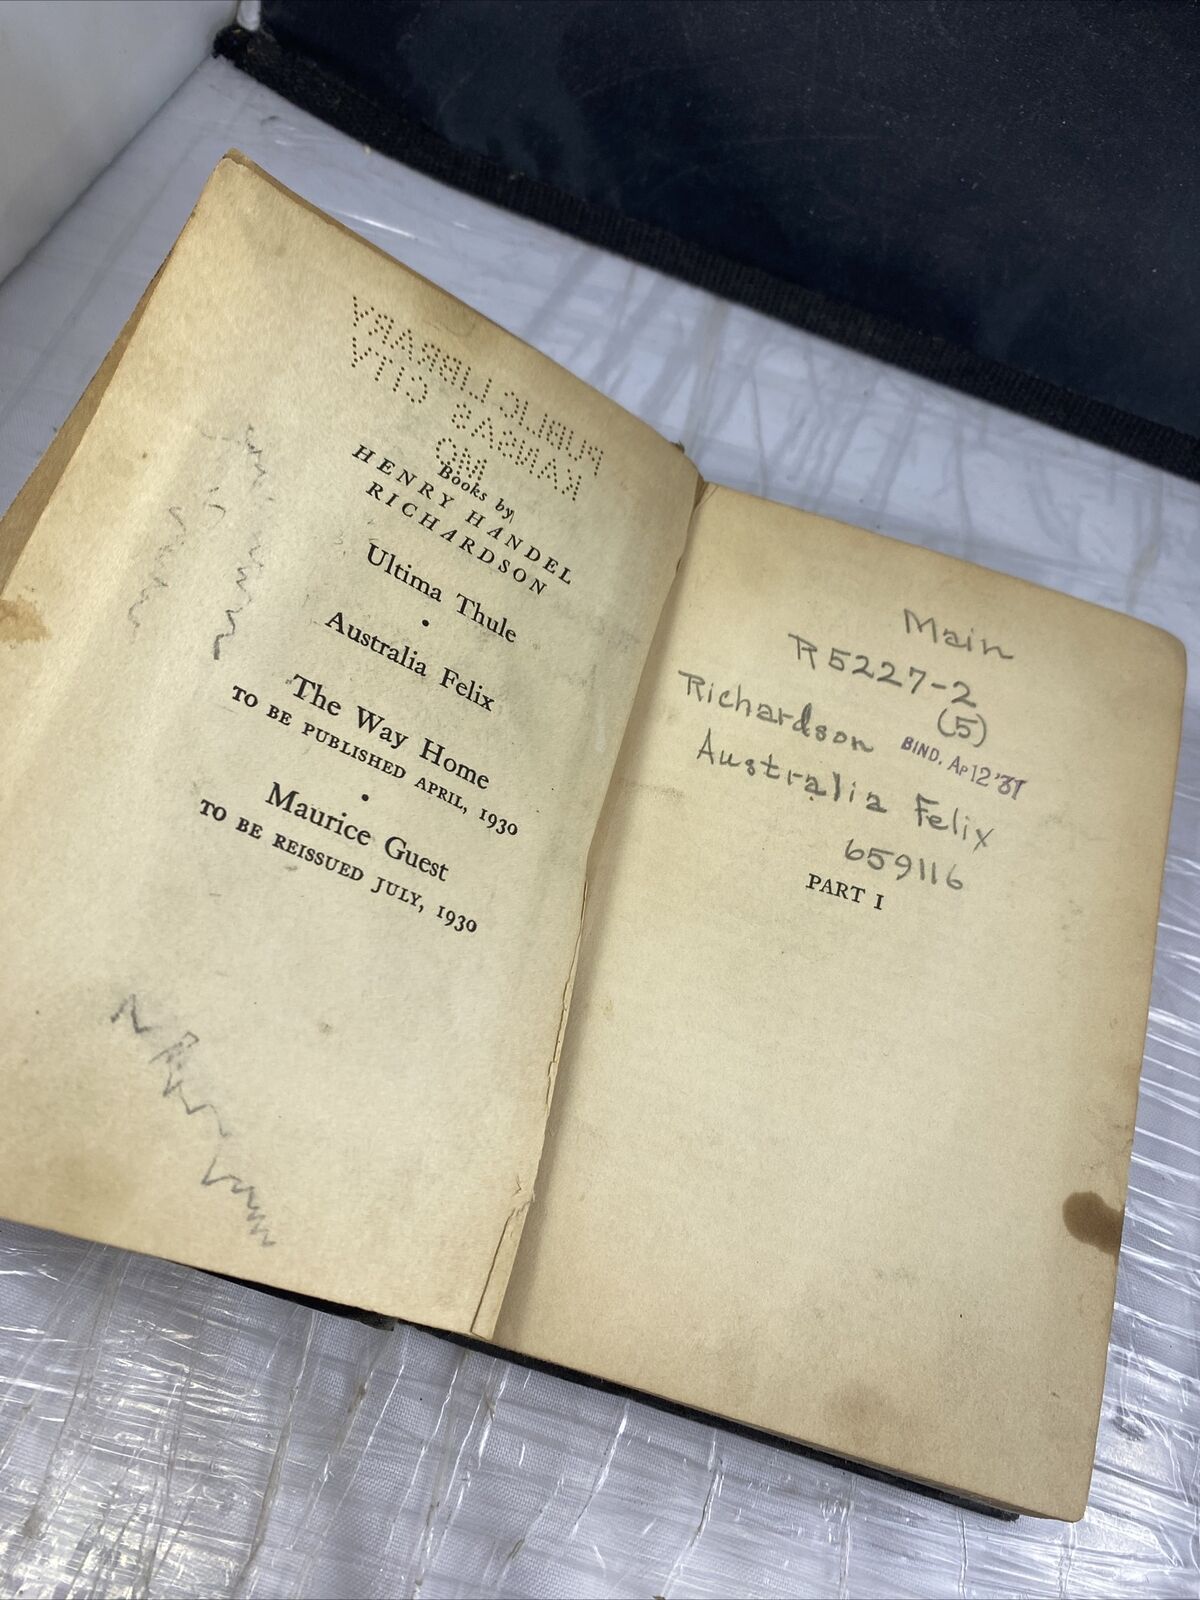 PUBLIC LIBRARY
KANSAS CITY
MO
Books by
HENRY HANDEL
RICHARDSON
Ultima Thule
•
Australia Felix
The Way Home
TO BE PUBLISHED APRIL, 1930
•
Maurice Guest
TO BE REISSUED JULY, 1930
Main
R5227-2
(5)
Richardson
BIND. Ap 12 '37
Australia Felix
659116
PART I